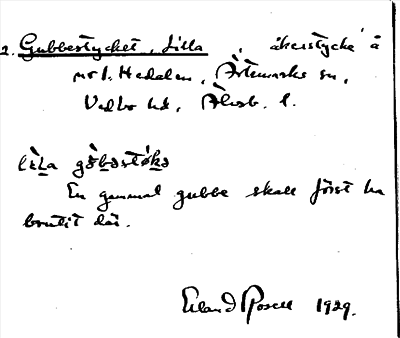 2. Gubbestycket, Lilla, åkerstycke å
nr 1. Hedalen, Ärtemarks sn,
Vedbo hd, Älvsb. l.
lìla gòbəstýkə
En gammal gubbe skall först ha
brutit där.
Erland Rosell 1929.